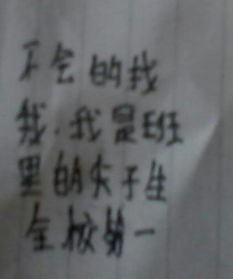 不会的找
我.我是班
里的尖子生
全校第一